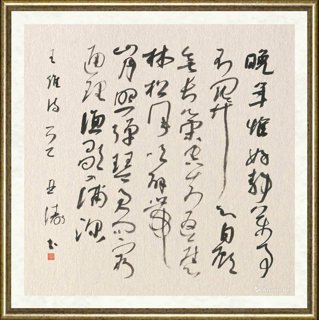 晚年惟好静万事
不关心自顾
无长策空知返旧
林松风吹解带
山月照弹琴君问穷
通理渔歌入浦深
王维诗 书